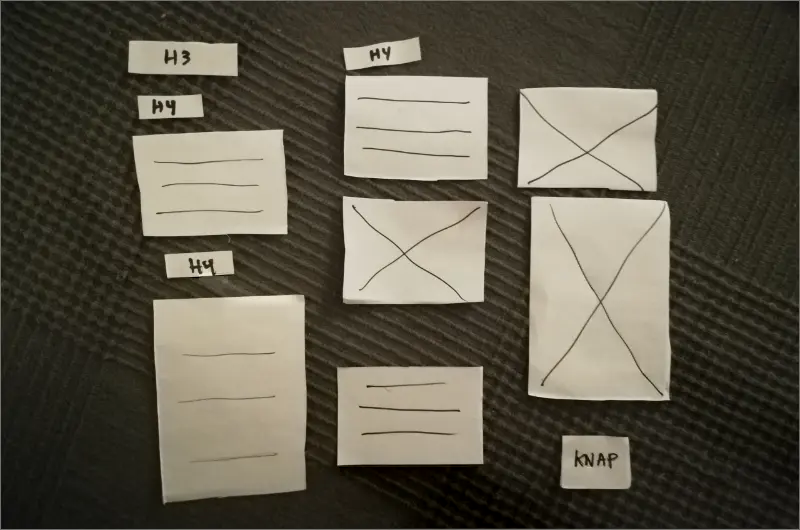 H3
H4
H4
H4
KNAP